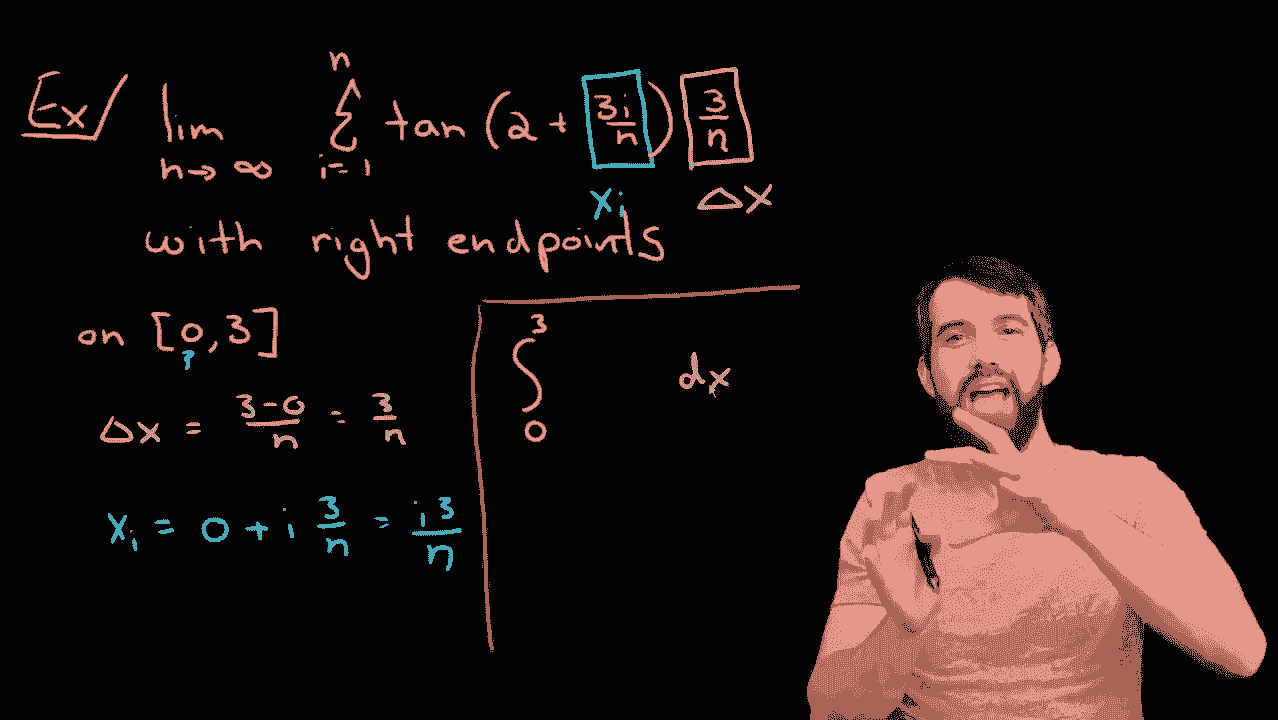 Ex/ lim n→∞ n Σ i=1 tan (2 + 3i/n) 3/n
xᵢ Δx
with right endpoints
on [0,3]
?
Δx = 3-0/n = 3/n
xᵢ = 0 + i 3/n = i3/n
∫ 3 0 dx